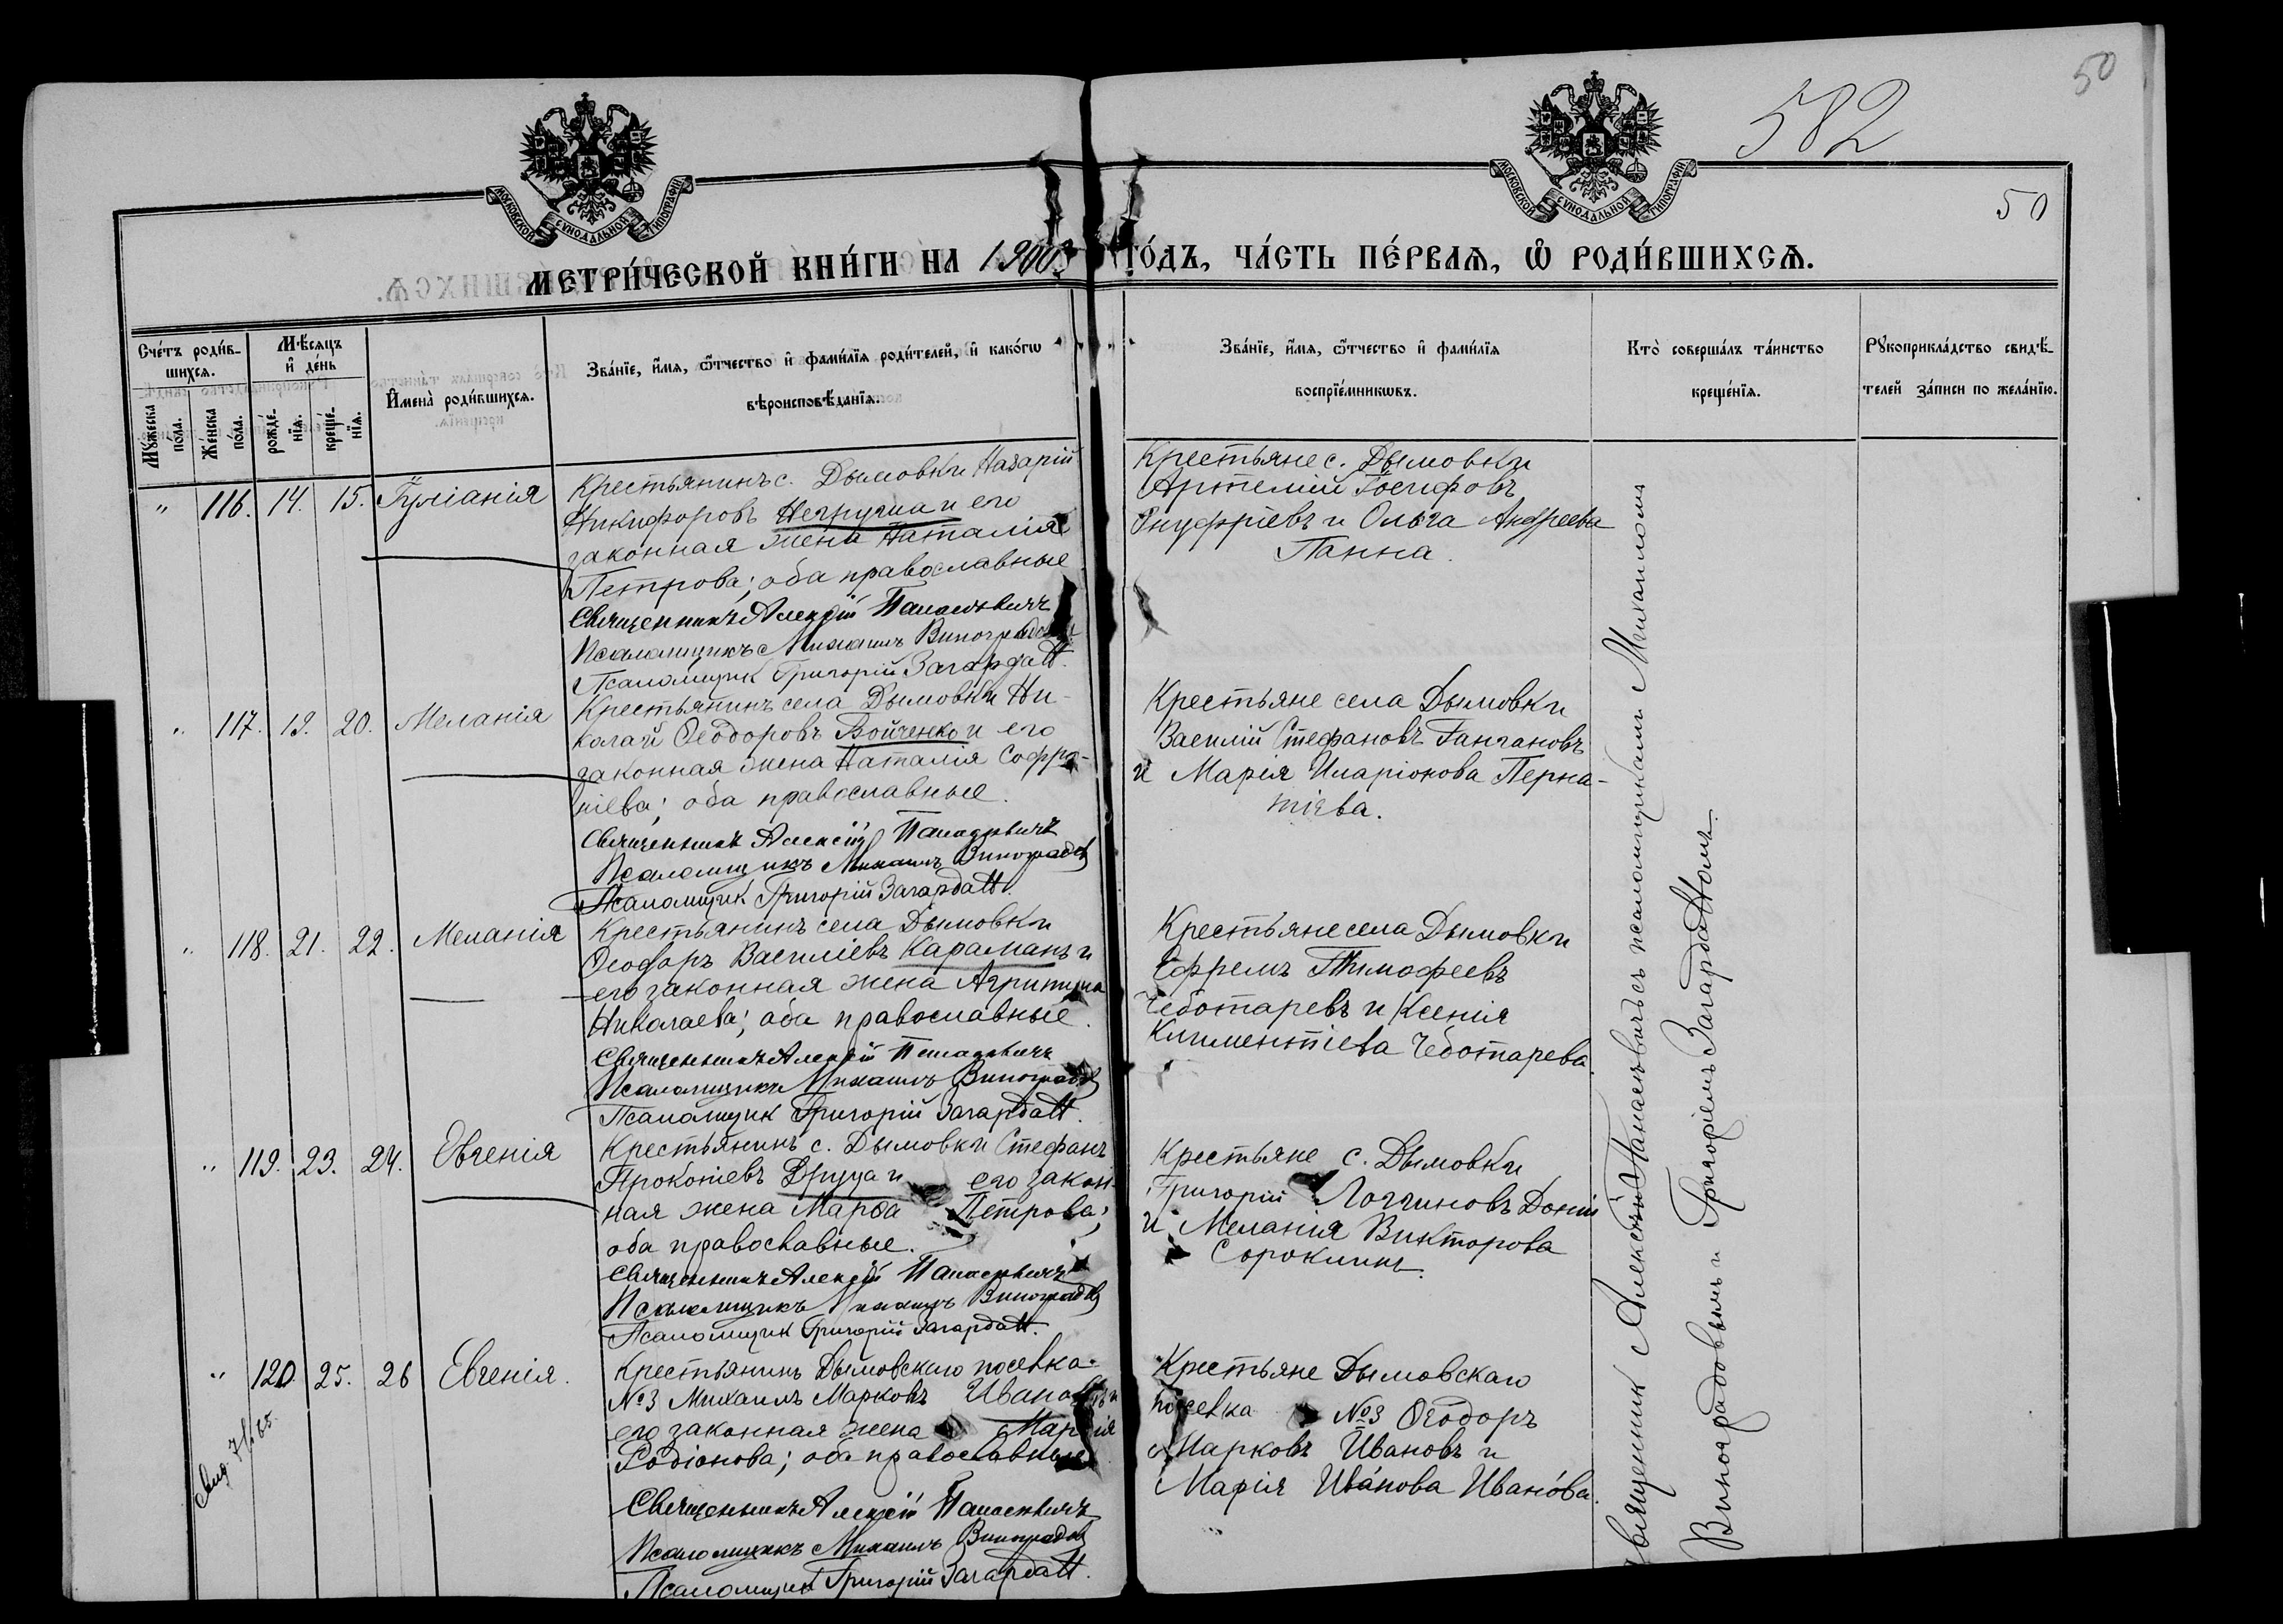 50
582
50
МОСКОВСКОЙ СУНОДАЛЬНОЙ ТИПОГРАФІИ
МОСКОВСКОЙ СУНОДАЛЬНОЙ ТИПОГРАФІИ
МЕТРИ́ЧЕСКОЙ КНИ́ГИ НА 1900 ГО́ДЪ, ЧА́СТЬ ПЕ́РВАѦ, Ѽ РОДИ́ВШИХСѦ.
Сче́тъ роди́в-
шихсѧ.
Мѣ́сѧцъ
и҆ де́нь
Мꙋ́жеска
по́ла.
Же́нска
по́ла.
рожде́-
нїѧ.
креще́-
нїѧ.
И҆мена̀ роди́вшихсѧ.
Зва́нїе, и҆́мѧ, ѻ҆́тчество и҆ фами́лїѧ роди́телей, и҆ како́гѡ
вѣроисповѣ́данїѧ.
Зва́нїе, и҆́мѧ, ѻ҆́тчество и҆ фами́лїѧ
воспрїе́мникѡвъ.
Кто̀ соверша́лъ та́инство
креще́нїѧ.
Рꙋкоприкла́дство свидѣ́-
телей за́писи по жела́нїю.
" 116. 14. 15. Іуліанія
Крестьянинъ с. Дымовки Назарій
Никифоровъ Негруша и его
законная жена Наталія
Петрова; оба православные
Священникъ Алексій
Псаломщикъ Михаилъ Виноградов
Псаломщик Григорій Загардан
Крестьяне с. Дымовки
Артемій Іосифовъ
Онуфріевъ и Ольга Андреева
Панна.
" 117. 19. 20. Меланія
Крестьянинъ села Дымовки Ни-
колай Ѳеодоровъ Войченко и его
законная жена Наталія Софро-
ніева; оба православные.
Священникъ Алексій
Псаломщикъ Михаилъ Виноградов
Псаломщик Григорій Загардан.
Крестьяне села Дымовки
Василій Стефановъ Ганчановъ
и Марія Иларіонова Перна-
тіева.
" 118. 21. 22. Меланія
Крестьянинъ села Дымовки
Ѳеодоръ Василіевъ Караманъ и
его законная жена Агрипина
Николаева; оба православные.
Священникъ Алексій
Псаломщикъ Михаилъ Виноградов
Псаломщик Григорій Загардан.
Крестьяне села Дымовки
Ефремъ Тимофеевъ
Чеботаревъ и Ксенія
Климентіева Чеботарева.
" 119. 23. 24. Евгенія
Крестьянинъ с. Дымовки Стефанъ
Прокопіевъ Друца и его закон-
ная жена Марѳа Петрова;
оба православные.
Священникъ Алексій
Псаломщикъ Михаилъ Виноградов
Псаломщик Григорій Загардан.
Крестьяне с. Дымовки
Григорій Логгиновъ Доній
и Меланія Викторова
Сорокина.
" 120 25. 26 Евгенія.
Крестьянинъ Дымовскаго поселка
№3 Михаилъ Марковъ Ивановъ и
его законная жена Марія
Родіонова; оба православные
Священникъ Алексій
Псаломщикъ Михаилъ Виноградов
Псаломщик Григорій Загардан.
Крестьяне Дымовскаго
поселка №3 Ѳеодоръ
Марковъ Ивановъ и
Марія Ива́нова Ивано́ва.
Священник Алексѣй съ псаломщиками Михаиломъ
Виноградовымъ и Григоріемъ Загарданомъ.